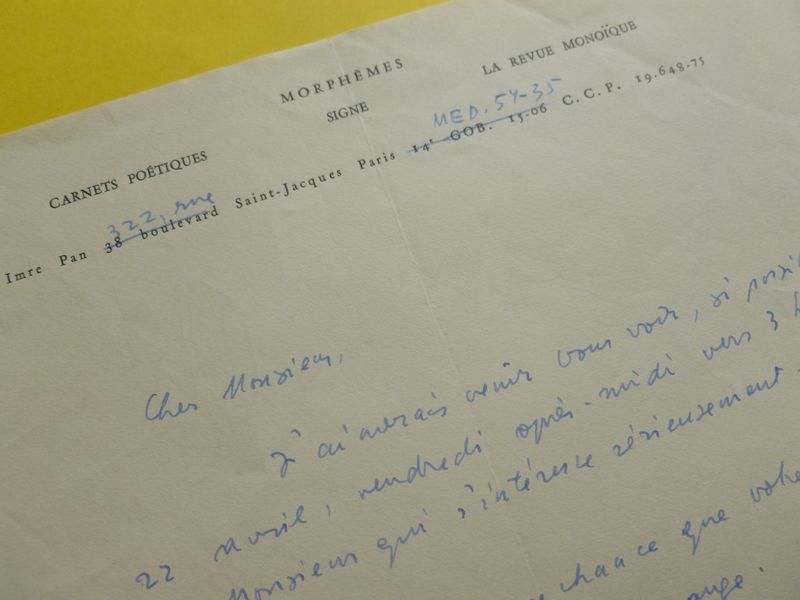 MORPHÈMES
LA REVUE MONOÏQUE
CARNETS POÉTIQUES
SIGNE
322, rue
MED. 54-35
Imre Pan 38 boulevard Saint-Jacques Paris 14e GOB. 15-06 C.C.P. 19.648-75
Cher Monsieur,
J'aimerais venir vous voir, si
22 avril, vendredi après-midi vers 3
Monsieur qui s'intéresse sérieusement
chance que votre